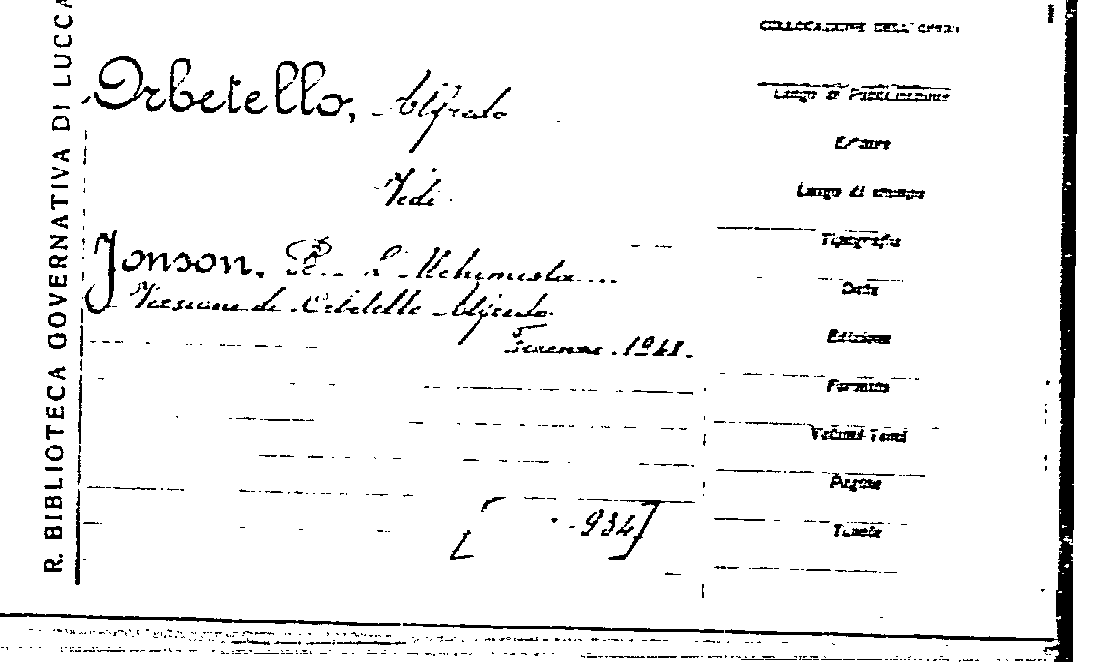 R. BIBLIOTECA GOVERNATIVA DI LUCCA
Orbetello, Alfredo
Vedi
Jonson, B. L'Alchimista...
Versione di Orbetello Alfredo
Firenze. 1948.
[934]
COLLOCAZIONE DELL'OPERA
Luogo di Pubblicazione
Editore
Luogo di stampa
Tipografia
Data
Edizione
Formato
Volumi-Tomi
Pagine
Tavole